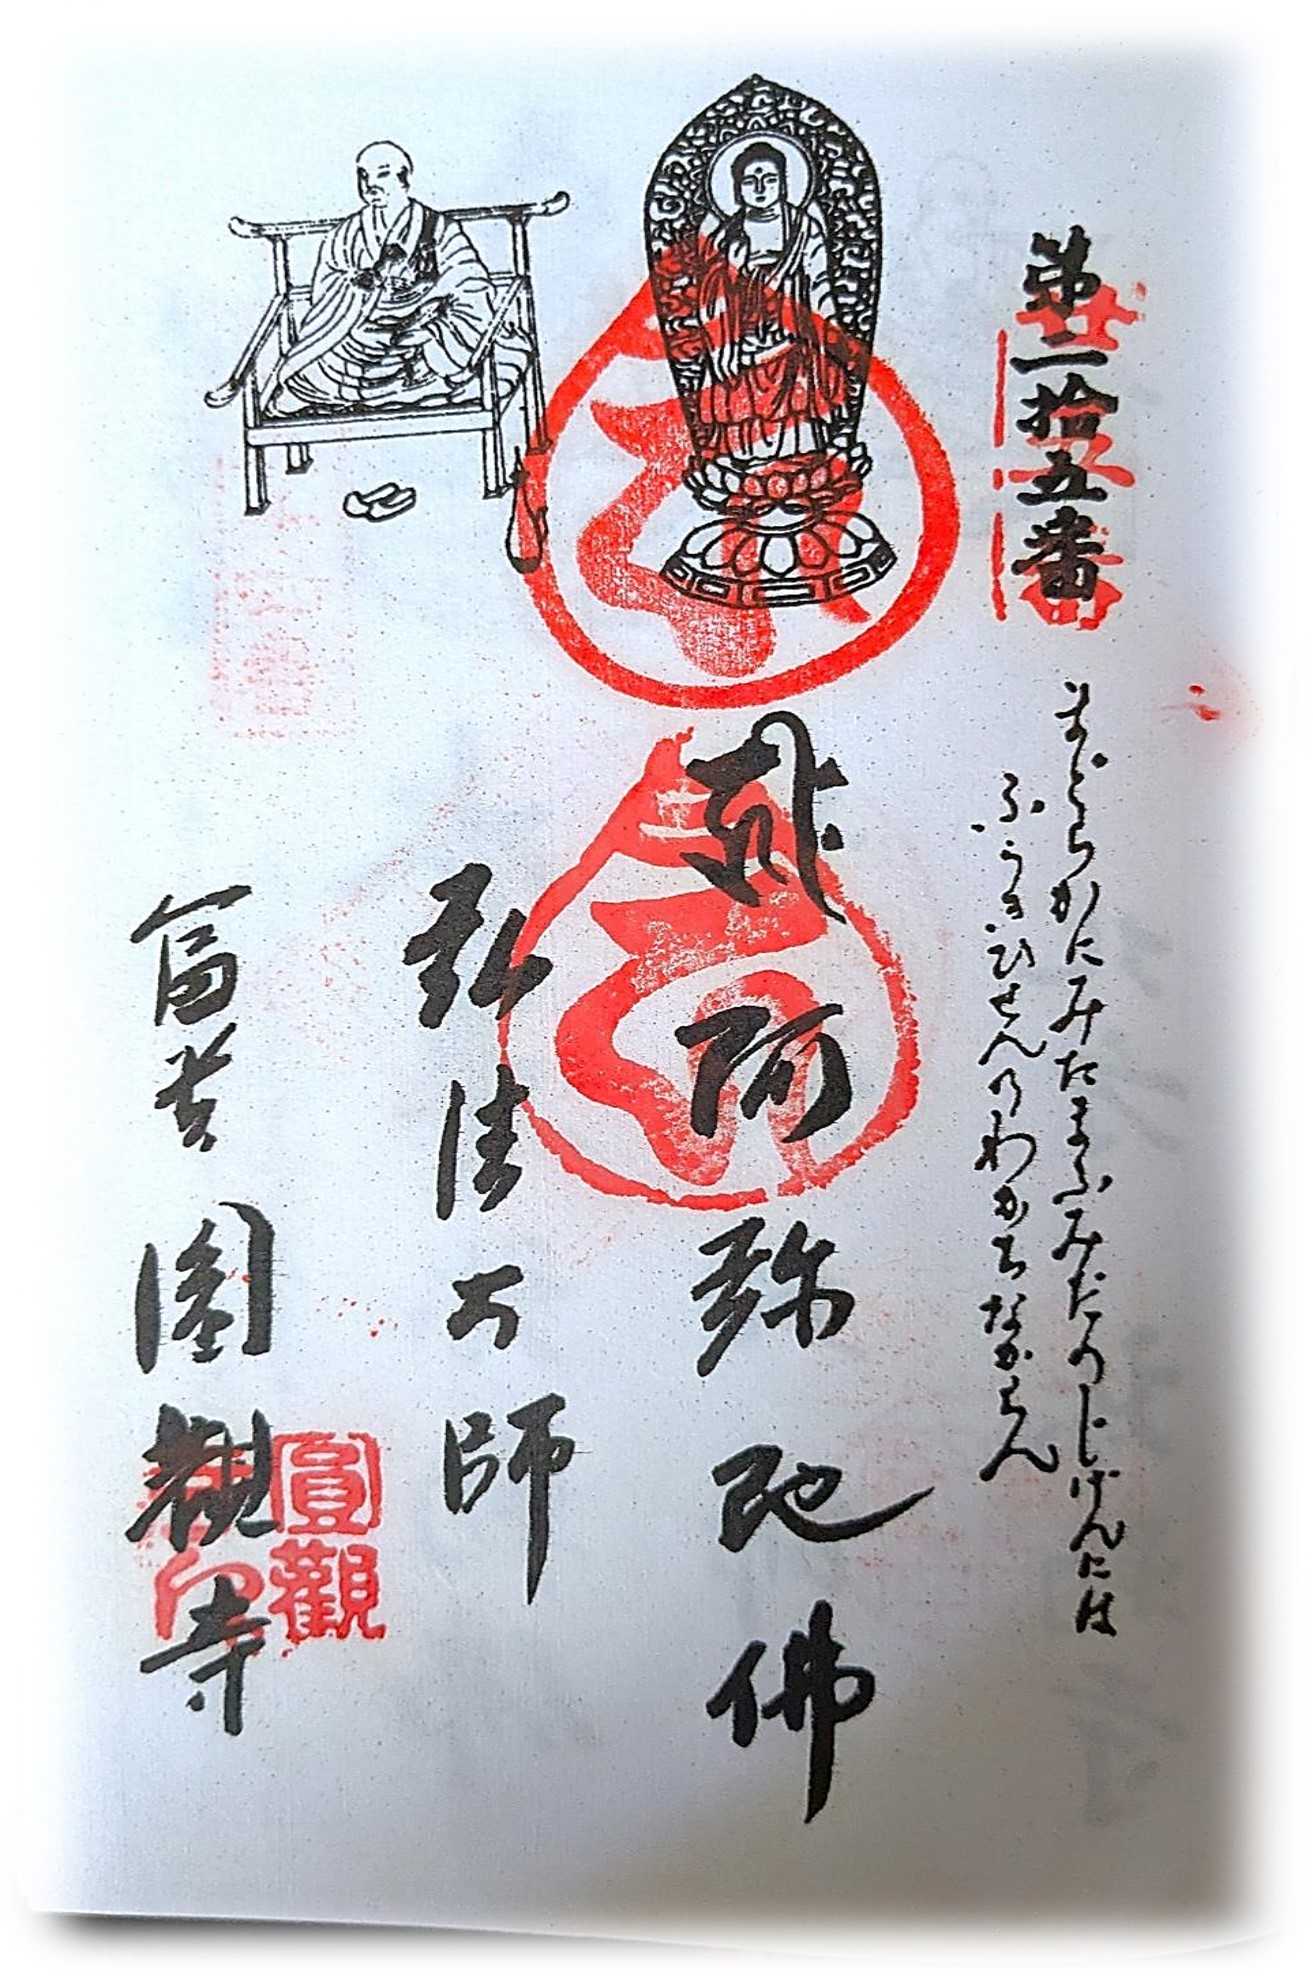 第二拾五番
廿五番
まどらかにみたまふみだのじげんには
ふうきひせんのわかちなからん
阿弥陀佛
弘法大師
富貴 圓観寺
圓觀
寺印